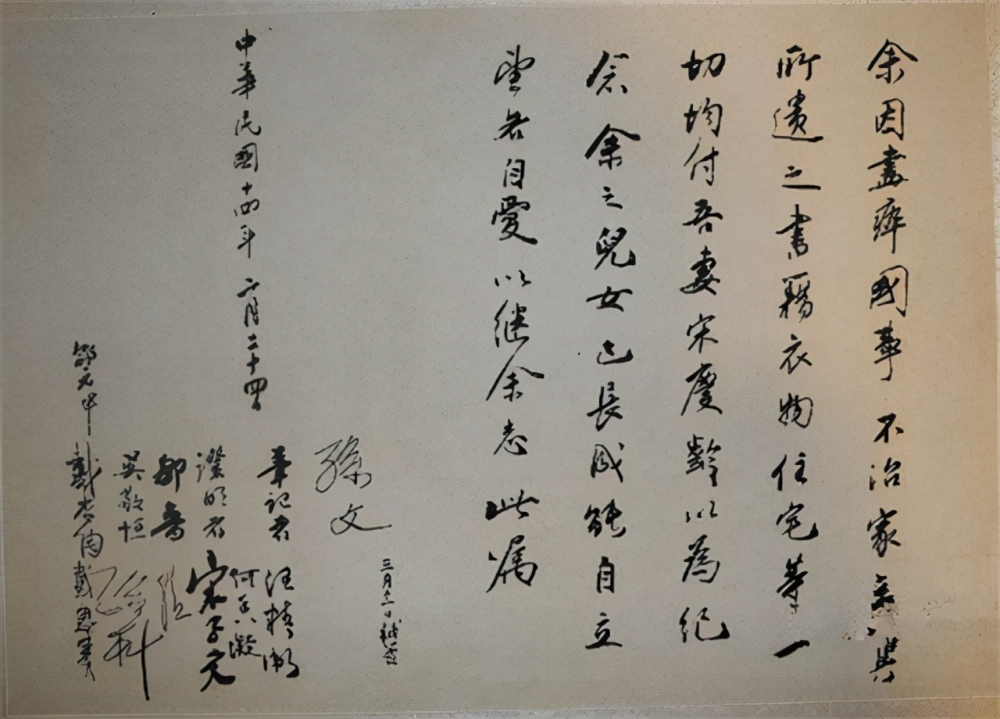 余因盡瘁國事不治家產其
所遺之書籍衣物住宅等一
切均付吾妻宋慶齡以為紀
念余之兒女已長成能自立
望各自愛以继余志此属
孫文
三月十一日補簽
中華民國十四年二月二十四日
筆記者 汪精衛
何香凝
證明者 宋子文
鄒魯
吳敬恒 孫科
邵元冲 戴恩賽